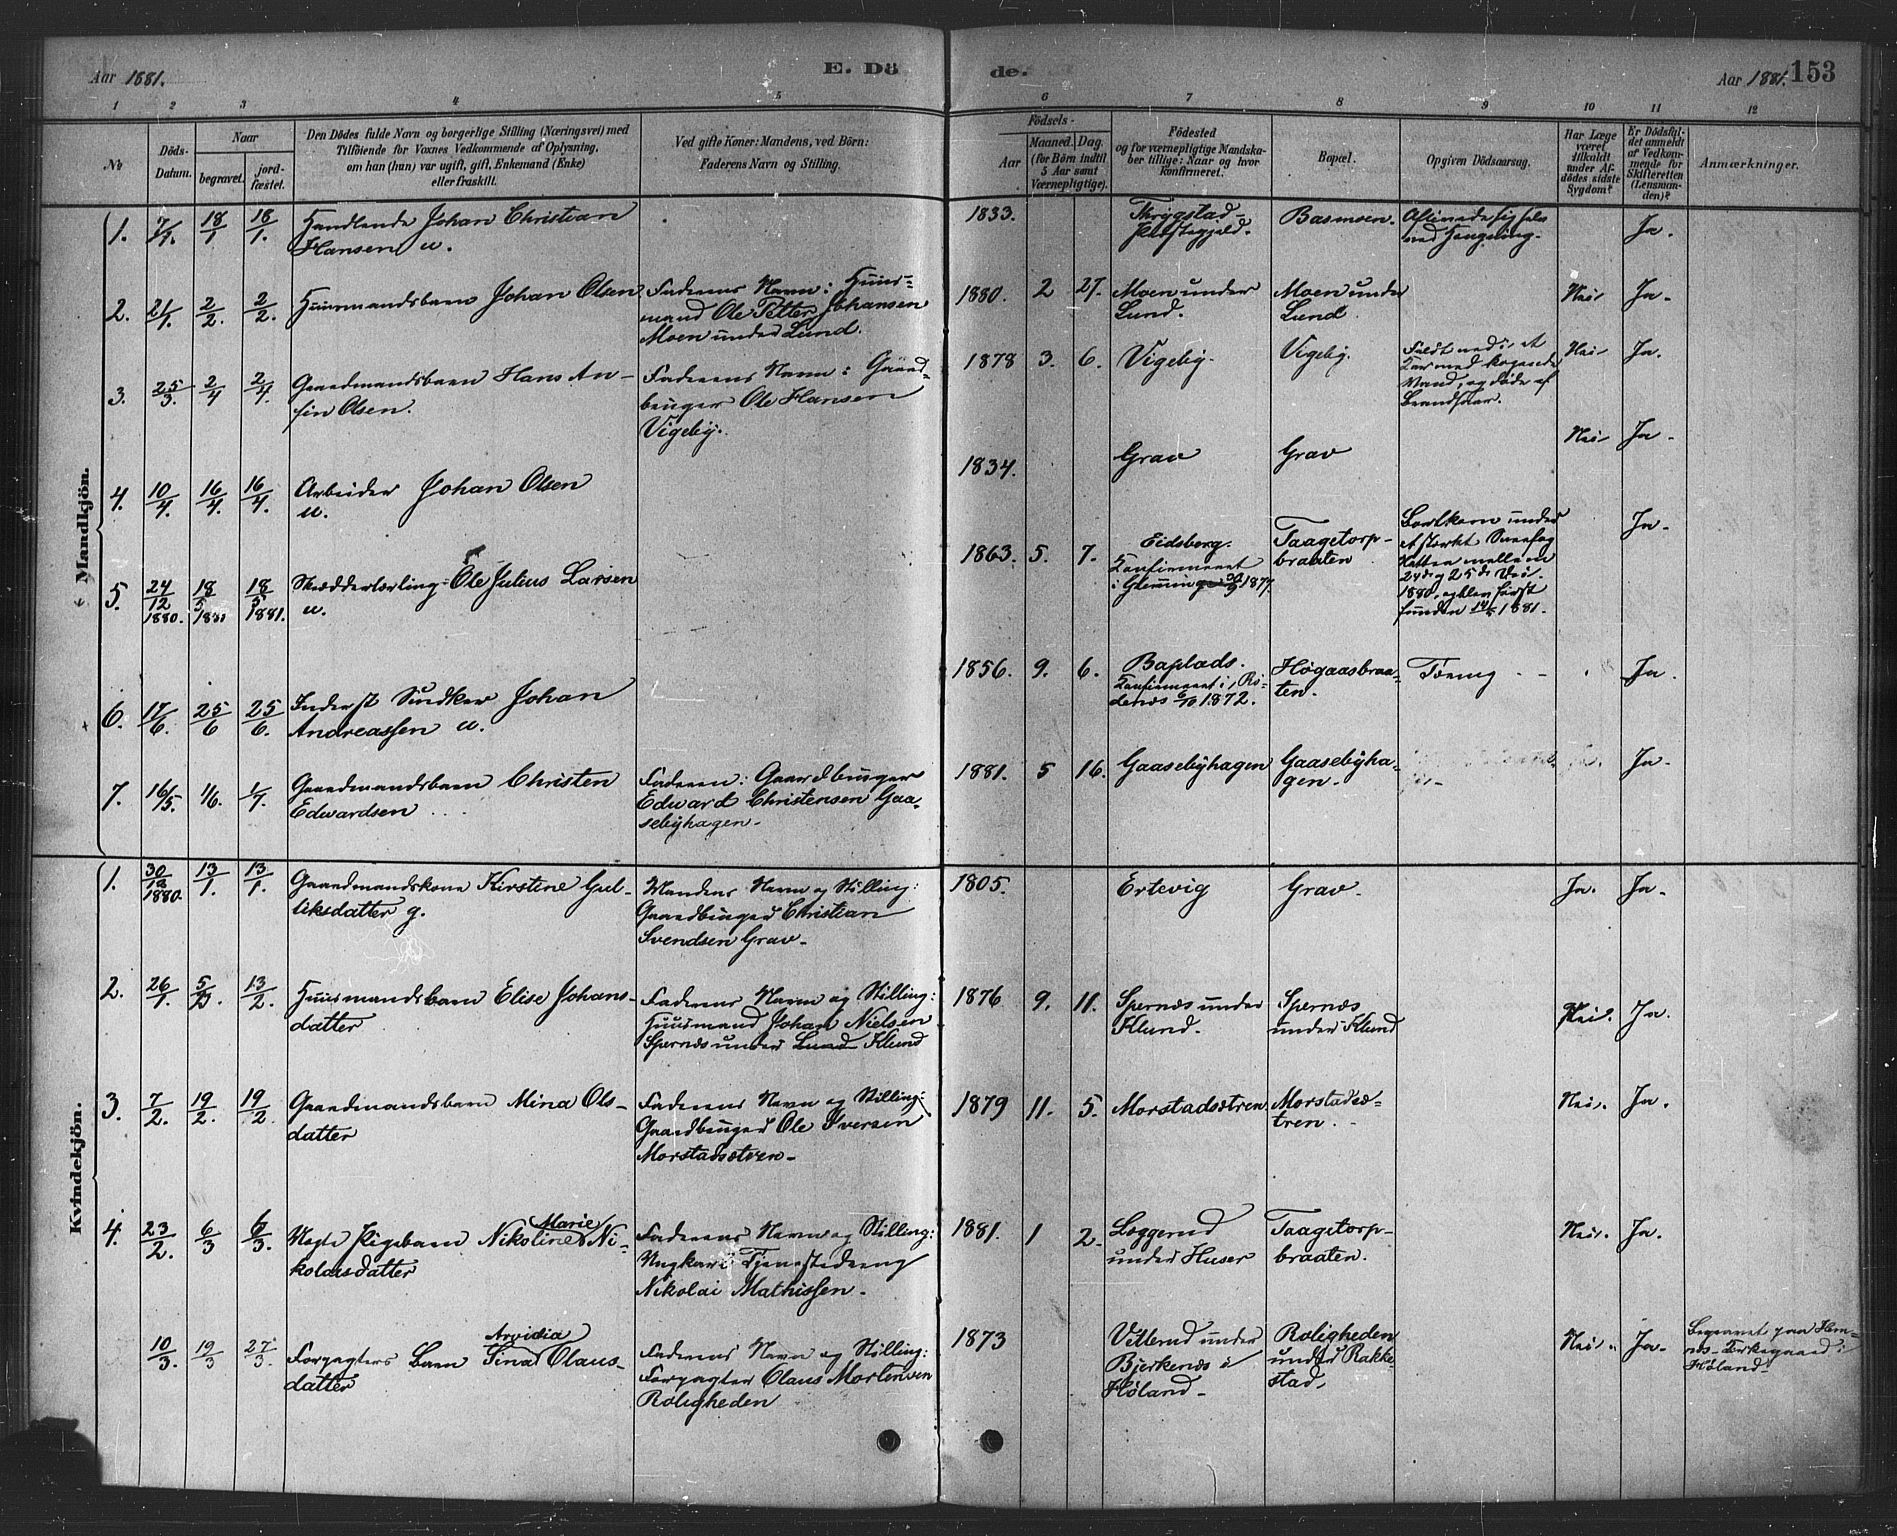 Aar 1881.
E. Dö
de.
Aar 1881.
153
1 2 3 4 5 6 7 8 9 10 11 12
No
Döds-
Datum.
Naar
begravet.
jord-
fæstet.
Den Dödes fulde Navn og borgerlige Stilling (Næringsvei) med
Tilföiende for Voxnes Vedkommende af Oplysning,
om han (hun) var ugift, gift, Enkemand (Enke)
eller fraskilt.
Ved gifte Koner: Mandens, ved Börn:
Faderens Navn og Stilling.
Födsels-
Aar
Maaned. Dag.
(for Börn indtil
5 Aar samt
Værnepligtige).
Födested
og for værnepligtige Mandska-
ber tillige: Naar og hvor
konfirmeret.
Bopæl.
Opgiven Dödsaarsag.
Har Læge
været
tilkaldt
under Af-
dödes sidste
Sygdom?
Er Dödsfal-
det anmeldt
af Vedkom-
mende for
Skifteretten
(Lensman-
den)?
Anmærkninger.
Mandkjön.
1. 7/1. 18/1 18/1.
Handlende Johan Christian
Hansen u.
1833.
Thrygstad
Præstegjeld.
Basmoen.
Aflivede sig selv
ved Hængning.
Ja.
2. 21/1. 2/2. 2/2.
Huusmandsbarn Johan Olsen
Faderens Navn: Huus-
mand Ole Petter Johansen
Moen under Lund.
1880. 2 27.
Moen under
Lund.
Moen under
Lund.
Nei Ja.
3. 25/3. 2/4 2/4.
Gaardmandsbarn Hans An-
fin Olsen.
Faderens Navn: Gaard-
bruger Ole Hansen
Vigeby.
1878 3. 6.
Vigeby.
Vigeby.
Faldt ned i et
Kar med kogende
Vand, og døde af
Brandsaar.
Nei Ja.
4. 10/4. 16/4. 16/4.
Arbeider Johan Olsen
u.
1834.
Grav
Grav
Nei Ja.
5. 24/12 1880. 18/5 1881 18/5 1881.
Skrædderlærling Ole Julius Larsen
u.
1863. 5. 7.
Eidsberg.
Konfirmeret
i Glemminge 1877.
Taagetorp-
braaten
Bortkom under
et stærkt Snefog
Natten mellem
24de og 25de Dec.
1880, og blev først
funden 14/5 1881.
Ja.
6. 17/6. 25/6 25/6.
Inderst Snedker Johan
Andreassen u.
1856. 9. 6.
Baplads.
Konfirmeret i Rö-
denæs 6/10 1872.
Høgaasbraa-
ten.
Tæring
Ja.
7. 16/5. 1/6. 1/7.
Gaardmandsbarn Christen
Edwardsen
Faderen: Gaardbruger
Edward Christensen Gaa-
sebyhagen.
1881. 5 16.
Gaasebyhagen
Gaasebyha-
gen.
Ja.
Kvindekjön.
1. 30/12 1880. 13/1. 13/1.
Gaardmandskone Kirstine Gul-
liksdatter g.
Mandens Navn og Stilling:
Gaardbruger Christian
Svendsen Grav.
1805.
Ertevig
Grav.
Ja. Ja.
2. 26/1. 5/2. 13/2.
Huusmandsbarn Elise Johans-
datter
Faderens Navn og Stilling:
Huusmand Johan Nielsen
Spernæs under Lund Klund
1876 9. 11.
Spernæs under
Klund.
Spernæs
under Klund
Nei. Ja.
3. 7/2. 19/2. 19/2
Gaardmandsbarn Mina Ols-
datter
Faderens Navn og Stilling:
Gaardbruger Ole Iversen
Morstadsætren.
1879 11. 5.
Morstadsætren
Morstadsæ-
tren.
Nei. Ja.
4. 23/2. 6/3 6/3.
Uægte Pigebarn Nikoline Marie Ni-
kolaisdatter
Faderens Navn og Stilling:
Ungkarl Tjenestedreng
Nikolai Mathissen.
1881. 1 2.
Læggerud
under Huser
Taagetorp-
braaten.
Nei. Ja.
10/3. 19/3 27/3.
Forpagters Barn Tina Arvidia Claus-
datter
Faderens Navn og Stilling:
Forpagter Claus Mortensen
Roligheden
1873
Vetterud under
Bjerkenæs i
Høland.
Roligheden
under Rakke-
stad.
Nei. Ja.
Begravet paa Hem-
næs Kirkegaard i
Høland.